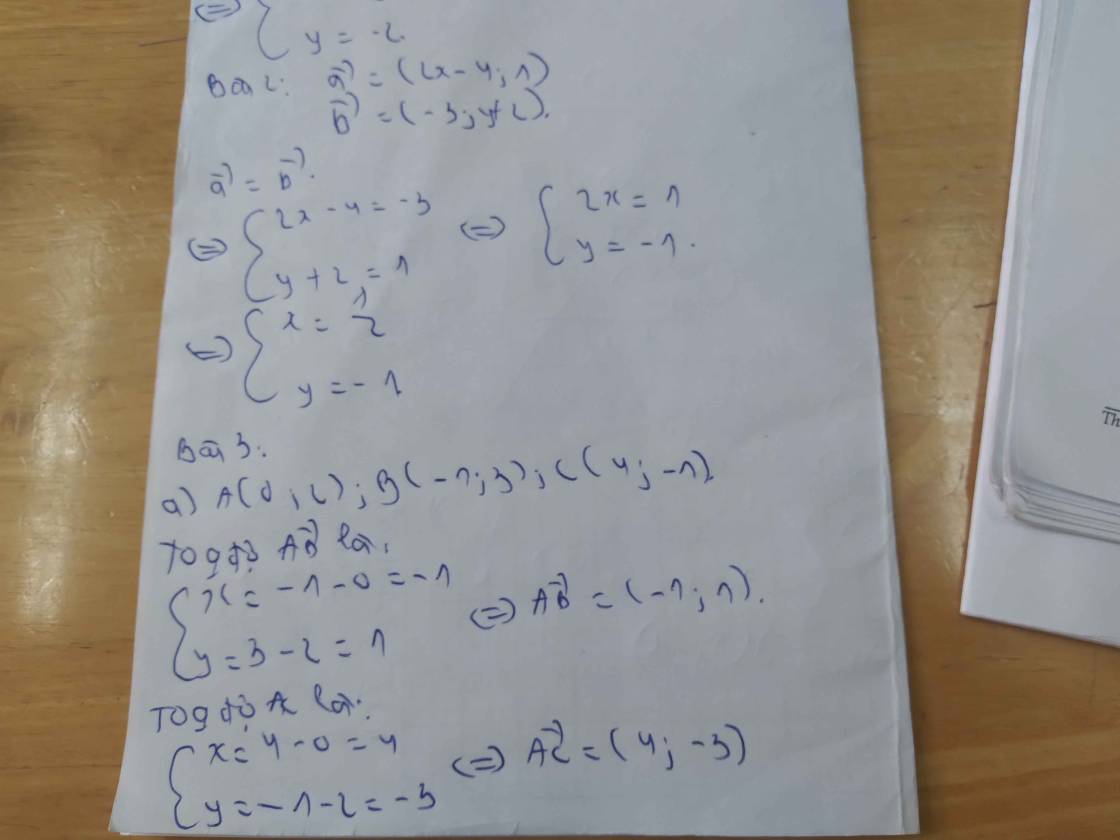 ⇔ {
y = -2.
Bài 2: a⃗ = (2x - 4; 1)
b⃗ = (-3; y+2).
a⃗ = b⃗.
⇔ { 2x - 4 = -3 ⇔ { 2x = 1
y + 2 = 1 y = -1.
⇔ { x = 1/2
y = -1
Bài 3:
a) A(0; 2); B(-1; 3); C(4; -1).
Toạ độ AB⃗ là:
{ x = -1 - 0 = -1
y = 3 - 2 = 1 ⇔ AB⃗ = (-1; 1).
Toạ độ AC là:
{ x = 4 - 0 = 4 ⇔ AC⃗ = (4; -3)
y = -1 - 2 = -3
Th